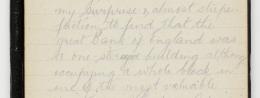 my surprise & almost stupe-
faction to find that the
great Bank of England was
a one story building althoug
occupying a whole block in
one of the most valuable